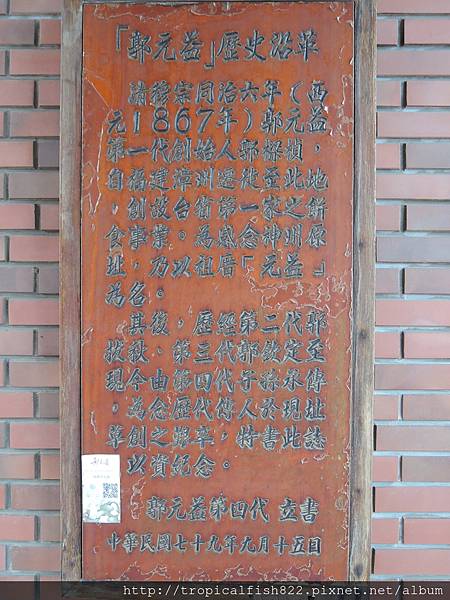 「郭元益」歷史沿革
清穆宗同治六年（西
元1867年）郭元益
第一代創始人郭樑楨，
自福建漳洲遷徙至此地
，創設台省第一家之餅
食事業。為感念神洲原
址，乃以祖厝「元益」
為名。
其後，歷經第二代郭
第三代郭欽定至
現今，由第四代子孫承傳
。為念歷代傳人於現址
草創之艱辛，特書此誌
以資紀念。
郭元益第四代 立書
中華民國七十九年九月十五日
http://tropicalfish822.pixnet.net/album